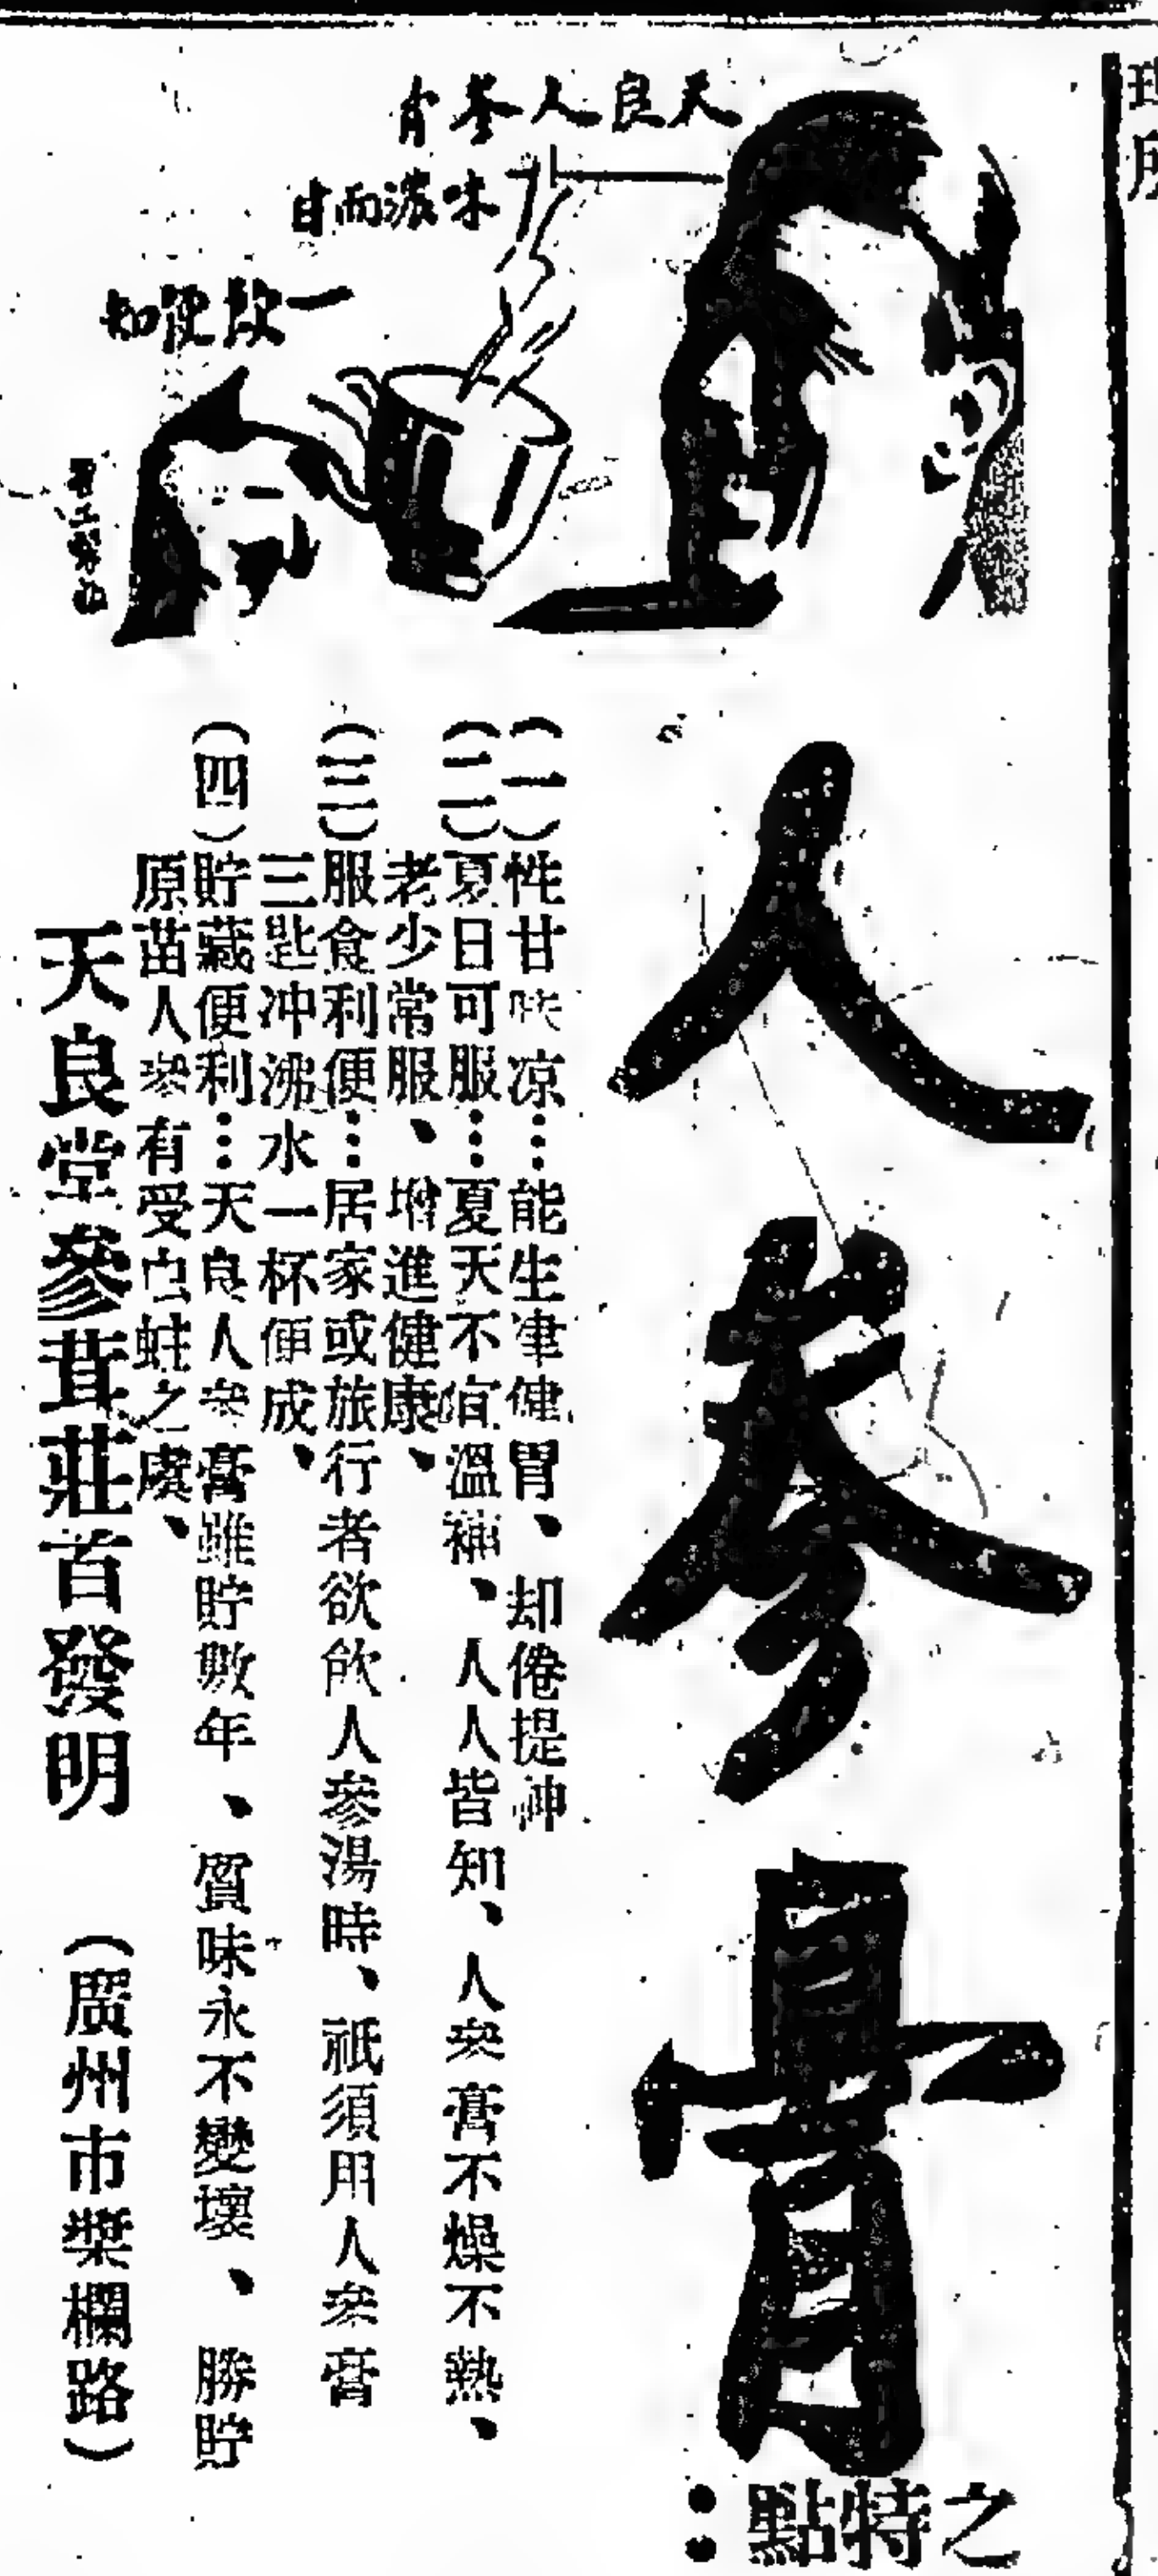 天良人參膏
味濃而甘
一飲便知
人參膏
之特點：
（一）性甘味凉…能生津健胃、却倦提神
（二）夏日可服…夏天不宜溫補、人人皆知、人參膏不燥不熱、
老少常服、增進健康、
（三）服食利便…居家或旅行者欲飲人參湯時、祇須用人參膏
三匙冲沸水一杯便成、
（四）貯藏便利…天良人參膏雖貯數年、質味永不變壞、勝貯
原苗人參有受虫蛀之虞、
天良堂參茸莊首發明　（廣州市槳欄路）